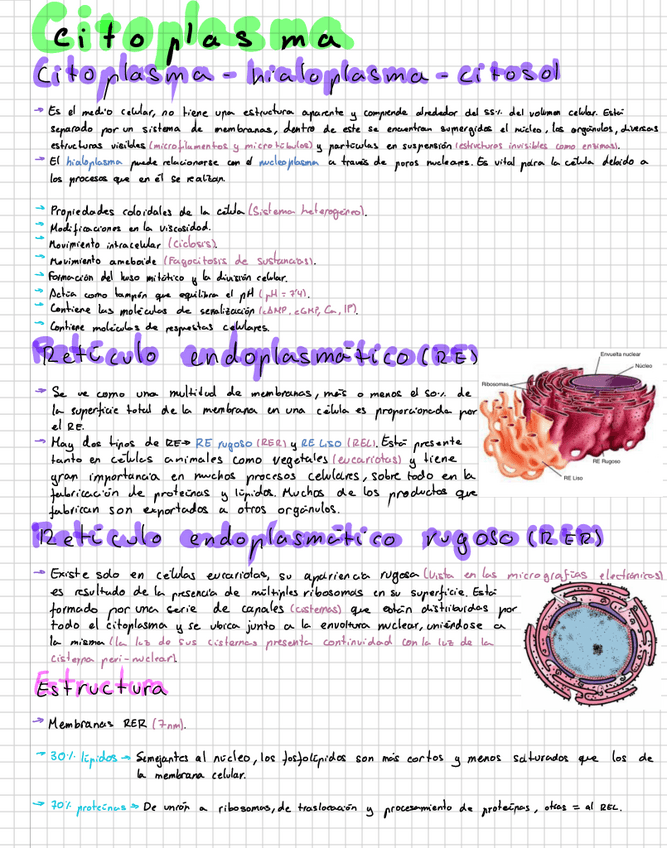 Citoplasma
Citoplasma - hialoplasma - citosol
→ Es el medio celular, no tiene una estructura aparente y comprende alrededor del 55% del volumen celular. Está
separado por un sistema de membranas, dentro de este se encuentran sumergidos el núcleo, los orgánulos, diversas
estructuras visibles (microfilamentos y microtúbulos) y partículas en suspensión (estructuras invisibles como enzimas).
→ El hialoplasma puede relacionarse con el nucleoplasma a través de poros nucleares. Es vital para la célula debido a
los procesos que en él se realizan.
→ Propiedades coloidales de la célula (Sistema heterogéneo).
→ Modificaciones en la viscosidad.
→ Movimiento intracelular (Ciclosis).
→ Movimiento ameboide (Fagocitosis de sustancias).
→ Formación del huso mitótico y la división celular.
→ Actúa como tampón que equilibra el pH (pH = 7'4).
→ Contiene las moléculas de señalización (cAMP, cGMP, Ca, IP).
→ Contiene moléculas de respuestas celulares.
Retículo endoplasmático (RE)
→ Se ve como una multitud de membranas, más o menos el 50% de
la superficie total de la membrana en una célula es proporcionada por
el RE.
→ Hay dos tipos de RE→ RE rugoso (RER) y RE Liso (REL). Está presente
tanto en células animales como vegetales (eucariotas) y tiene
gran importancia en muchos procesos celulares, sobre todo en la
fabricación de proteínas y lípidos. Muchos de los productos que
fabrican son exportados a otros orgánulos.
Envuelta nuclear
Núcleo
Ribosomas
RE Rugoso
RE Liso
Retículo endoplasmático rugoso (RER)
→ Existe solo en células eucariotas, su apariencia rugosa (Vista en las micrografías electrónicas)
es resultado de la presencia de múltiples ribosomas en su superficie. Está
formado por una serie de canales (cisternas) que están distribuidas por
todo el citoplasma y se ubica junto a la envoltura nuclear, uniéndose a
la misma (la luz de sus cisternas presenta continuidad con la luz de la
cisterna peri-nuclear)
Estructura
→ Membranas RER (7nm).
→ 30% lípidos → Semejantes al núcleo, los fosfolípidos son más cortos y menos saturados que los de
la membrana celular.
→ 70% proteínas → De unión a ribosomas, de traslocación y procesamiento de proteínas, otras = al REL.